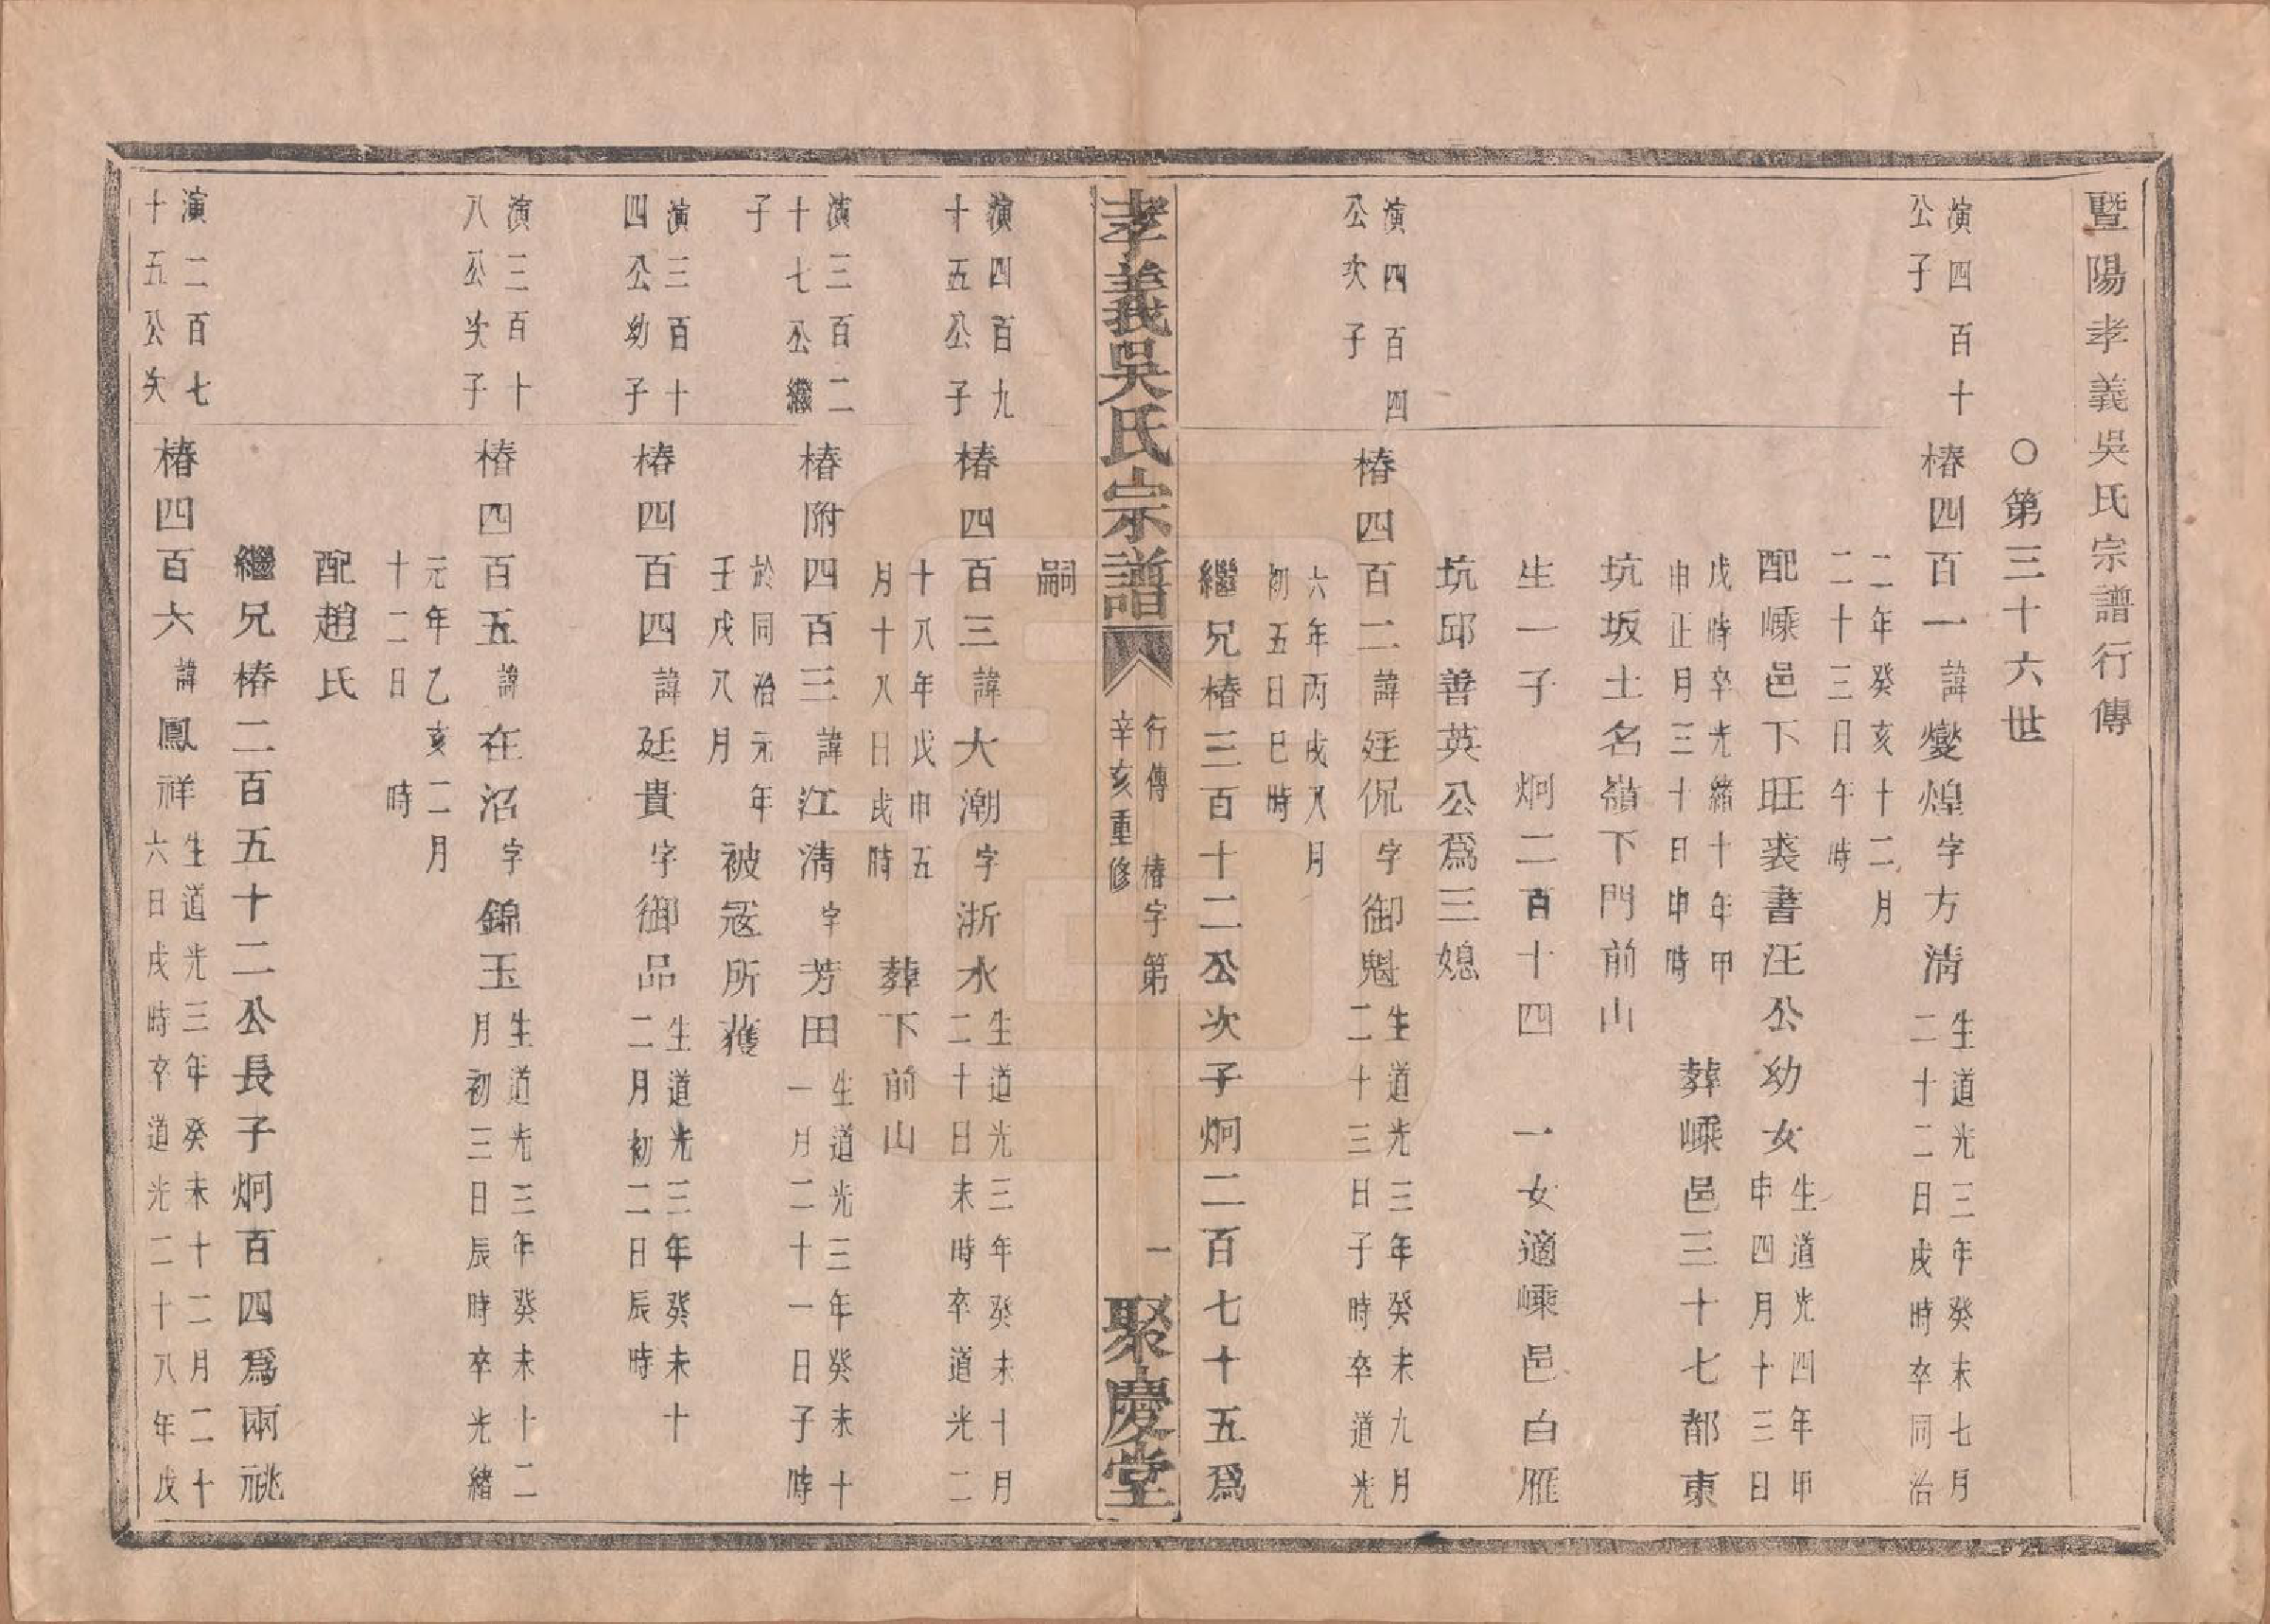 暨陽孝義吳氏宗譜行傳
○第三十六世
演四百十
公子
椿四百一諱燮煌字方淸
生道光三年癸未七月
二十二日戌時卒同治
二年癸亥十二月
二十三日午時
配嵊邑下旺裘書汪公幼女
生道光四年甲
申四月十三日
戌時卒光緖十年甲
申正月三十日申時
葬嵊邑三十七都東
坑坂土名嶺下門前山
生一子 炯二百十四 一女適嵊邑白雁
坑邱善英公爲三媳
演四百四
公次子
椿四百二諱廷侃字御魁
生道光三年癸未九月
二十三日子時卒道光
六年丙戌八月
初五日巳時
繼兄椿三百十二公次子炯二百七十五爲
孝義吳氏宗譜
行傳 椿字第 一
辛亥重修
聚慶堂
嗣
演四百九
十五公子
椿四百三諱大潮字浙水
生道光三年癸未十月
二十日未時卒道光二
十八年戊申五
月十八日戌時
葬下前山
演三百二
十七公繼
子
椿附四百三諱江淸字芳田
生道光三年癸未十
一月二十一日子時
於同治元年
壬戌八月
被寇所獲
演三百十
四公幼子
椿四百四諱廷貴字御品
生道光三年癸未十
二月初二日辰時
演三百十
八公次子
椿四百五諱在沼字錦玉
生道光三年癸未十二
月初三日辰時卒光緖
元年乙亥二月
十二日 時
配趙氏
繼兄椿二百五十二公長子炯百四爲兩祧
演二百七
十五公次
椿四百六諱鳳祥
生道光三年癸未十二月二十
六日戌時卒道光二十八年戊